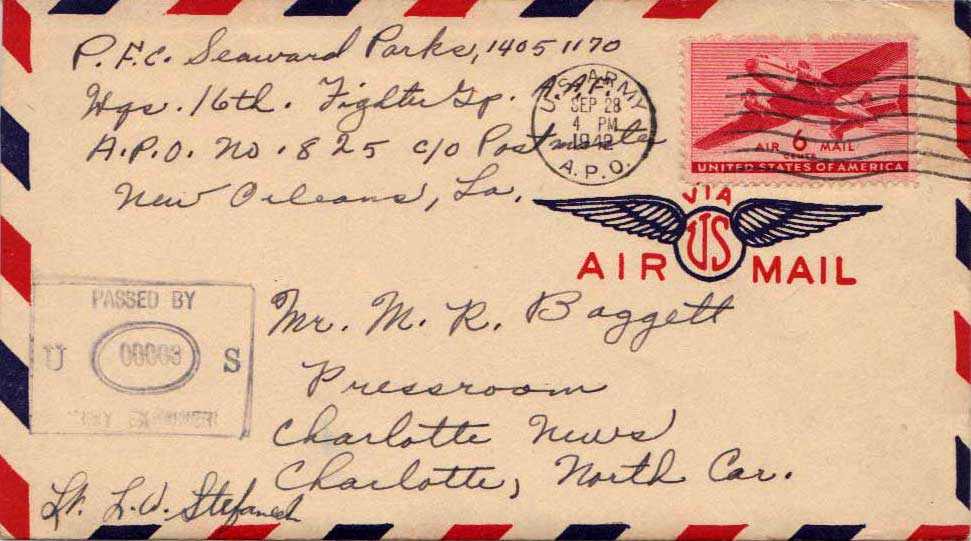 P.F.C. Seaward Parks, 14051170
Hqs. 16th. Fighter Gp. A.A.F.
A.P.O. No. 825 c/o Postmaster
New Orleans, La.
U.S. ARMY
SEP 28
4 PM
1942
A.P.O.
AIR 6 MAIL
CENTS
UNITED STATES OF AMERICA
VIA
US
AIR MAIL
PASSED BY
U 00003 S
ARMY EXAMINER
Mr. M. R. Baggett
Pressroom
Charlotte News
Charlotte, North Car.
Lt. L.W.